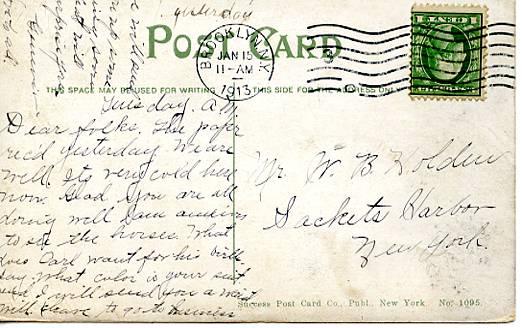 yesterday
POST CARD
BROOKLYN, N.Y.
JAN 15
11-AM
1913
THIS SPACE MAY BE USED FOR WRITING
THIS SIDE FOR THE ADDRESS ONLY
Tuesday. A.M.
Dear folks. The paper
rec'd yesterday. We are
well. Its very cold here
now. Glad you are all
doing well I am anxious
to see the horses. What
does Carl want for his birth
day. What color is your suit
and I will send you a waist
will have to go to business
Mr. W. B. Holden
Sackets Harbor
New York.
Success Post Card Co., Publ., New York. No. 1095.